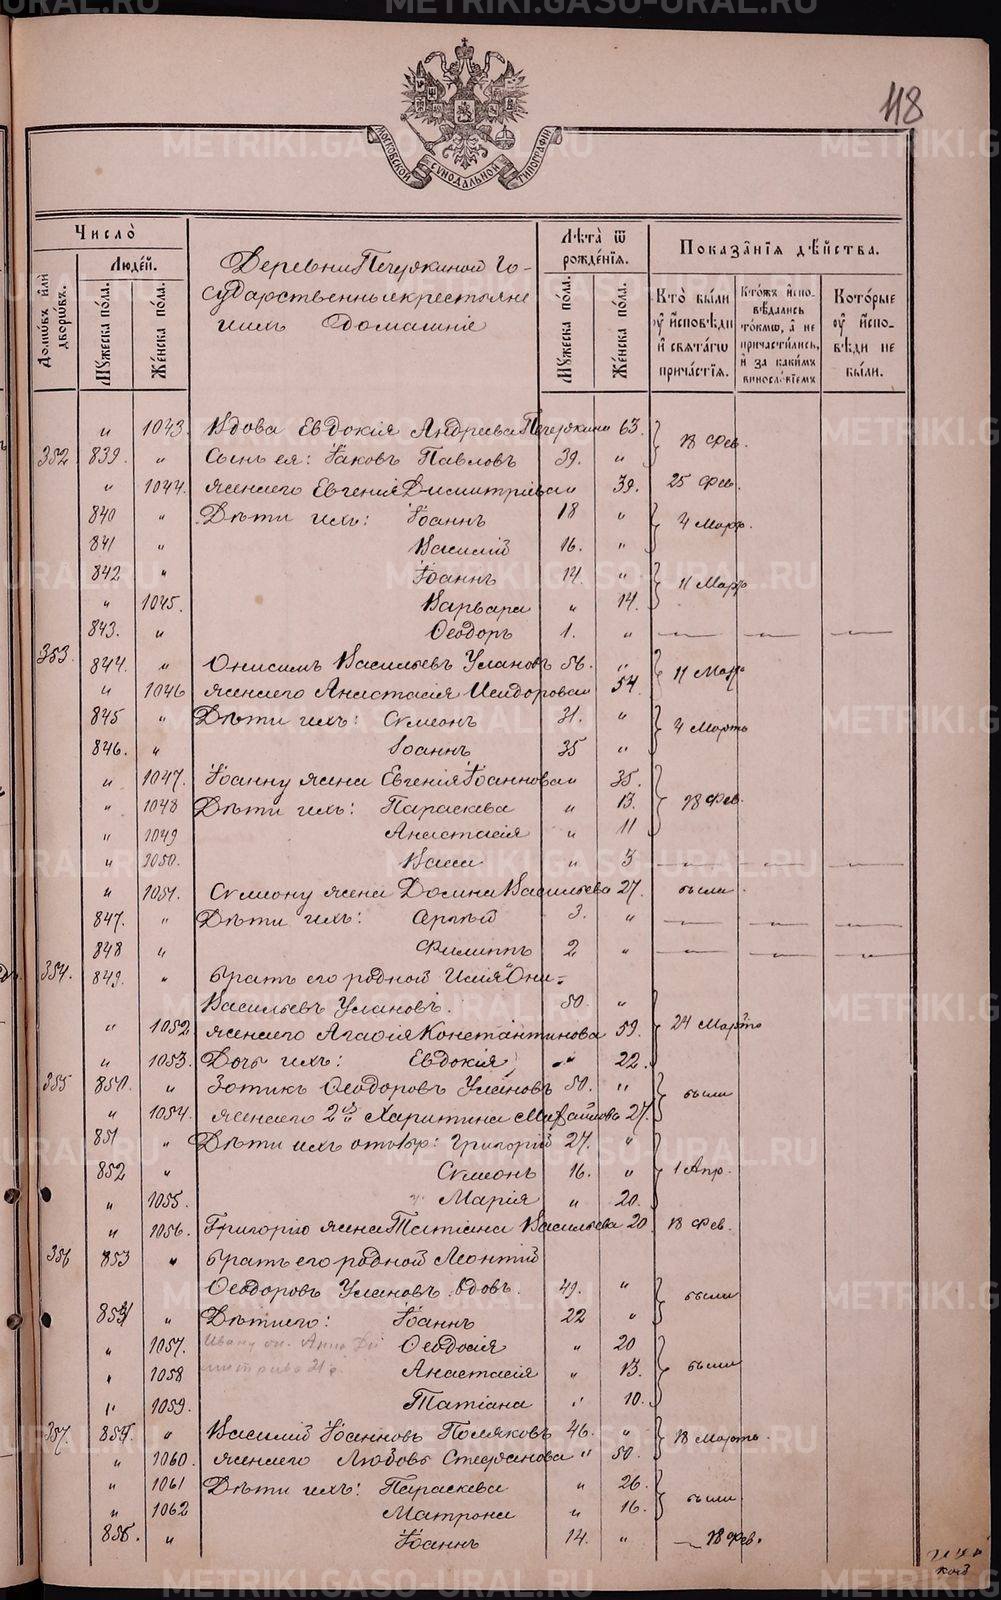 METRIKI.GASO-URAL.RU
118
МОСКОВСКОЙ СУНОДАЛЬНОЙ ТИПОГРАФІИ
Число̀
Людéй.
Домώвъ и҆лѝ дворώвъ.
Мꙋ́жеска по́ла.
Жéнска по́ла.
Деревни Печеркиной Го-
сударственные крестьяне
и ихъ Домашніе
Лѣ̑та ѿ рождéнїѧ.
Мꙋ́жеска по́ла.
Жéнска по́ла.
Показа̑нїѧ дѣ́йства.
Кто̀ бы́ли ᲂу҆ и҆спо́вѣди и҆ свѧта́гѡ прича́стїѧ.
Кто́жъ и҆спо-вѣ́дались то́кмѡ, а҆ не причасти́лись, и҆ за каки́мъ винослóвїемъ
Кото́рые ᲂу҆ и҆спо-вѣди не бы́ли.
" 1043. Вдова Евдокія Андреева Печеркина 63. } 18 Фев.
352 839. " Сынъ ея: Іаковъ Павловъ 39. "
" 1044. жена его Евгенія Димитріева " 39. 25 Фев.
840 " Дѣти ихъ: Іоаннъ 18 " } 4 Марта
841 " Василій 16. "
842 " Іоаннъ 14 " } 11 Марта
" 1045. Варвара " 14.
843. " Ѳеодоръ 1. " — — —
353. 844. " Онисимъ Васильевъ Улановъ 56. " } 11 Марта
" 1046 жена его Анастасія Исидорова " 54.
845 " Дѣти ихъ: Симеонъ 31. " } 4 Марта
846. " Іоаннъ 35 "
" 1047. Іоанну жена Евгенія Іоаннова " 35. } 18 Фев.
" 1048 Дѣти ихъ: Параскева " 13.
" 1049 Анастасія " 11
" 1050. Васса " 3 — — —
" 1051. Симеону жена Домна Васильева 27. были.
847. " Дѣти ихъ: Сергѣй 3. " — — —
848 " Филиппъ 2 " — — —
354. 849. " братъ его родной
Васильевъ Улановъ. 50. "
" 1052 жена его Агаѳія Константинова 59. } 24 Марта
" 1053. Дочь ихъ: Евдокія " 22.
355 850. " Зотикъ Ѳеодоровъ Улановъ 50. " } были
" 1054. жена его 2я Харитина Михайлова 27.
851 " Дѣти ихъ отъ 1бр: Григорій 27. " } 1 Апр.
852 " Симеонъ 16. "
" 1055. Марія " 20.
" 1056. Григорію жена Татіана Васильева 20 18 Фев.
356 853 " братъ его родной Леонтій
Ѳеодоровъ Улановъ вдовъ. 49. " } были
854 " Дѣти его: Іоаннъ 22 "
" 1057. Ивану ж. Анна Ди Ѳеодосія " 20 } были
" 1058 митріева 21 г Анастасія " 13.
" 1059. Татіана " 10.
357. 855. " Василій Іоанновъ Поляковъ 46. " } 18 Марта.
" 1060. жена его Любовь Стефанова " 50.
" 1061 Дѣти ихъ: Параскева " 26. } были.
" 1062 Матрона " 16.
856. " Іоаннъ 14. " — 18 Фев.